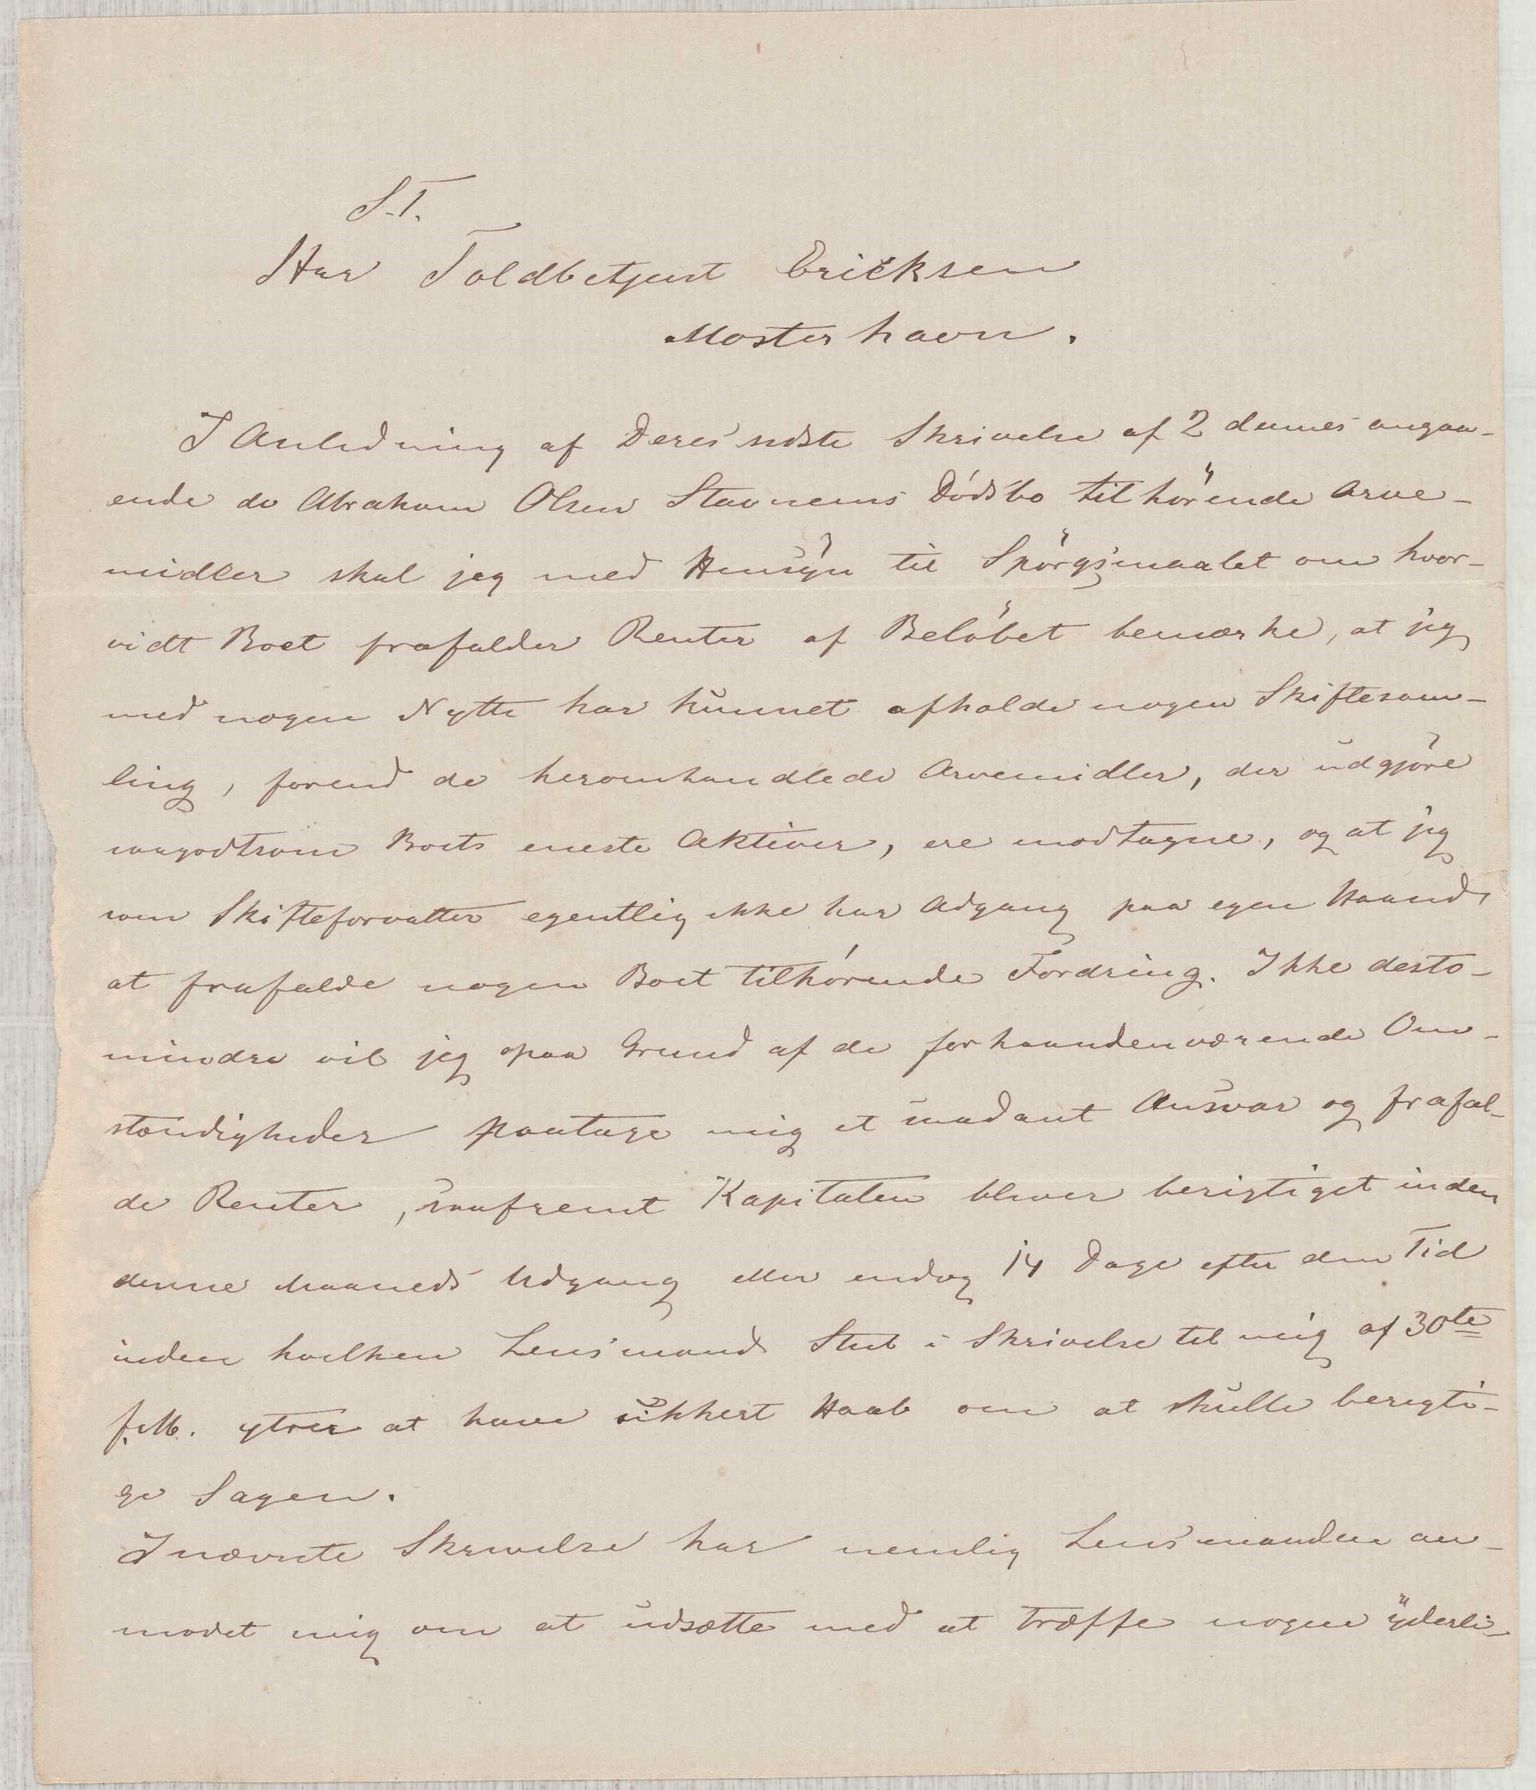 S.T.
Herr Toldbetjent Ericksen
Mosterhavn.
I Anledning af Deres sidste Skrivelse af 2 dennes angaa-
ende de Abraham Olsen Stavnems Dødsbo tilhörende Arve-
midler skal jeg med Hensyn til Spörgsmaalet om hvor-
vidt Boet frafalder Renter af Belöbet bemærke, at jeg
med nogen Nytte har kunnet afholde nogen Skiftesam-
ling, forend de heromhandlede Arvemidler, der udgjöre
saagodtsom Boets eneste Aktiver, ere modtagne, og at jeg
som Skifteforvalter egentlig ikke har Adgang paa egen Haand
at frafalde nogen Boet tilhørende Fordring. Ikke desto-
mindre vil jeg paa Grund af de forhaandenværende Om-
stændigheder paatage mig et saadant Ansvar og frafal-
de Renter, saafremt Kapitalen bliver berigtiget inden
denne Maaneds Udgang eller endog 14 Dage efter den Tid
inden hvilken Lensmand Stub i Skrivelse til mig af 30te
f.M. ytrer at have sikkert Haab om at skulle berigti-
ge Sagen.
I nævnte Skrivelse har nemlig Lensmanden an-
modet mig om at udsætte med at træffe nogen yderli-